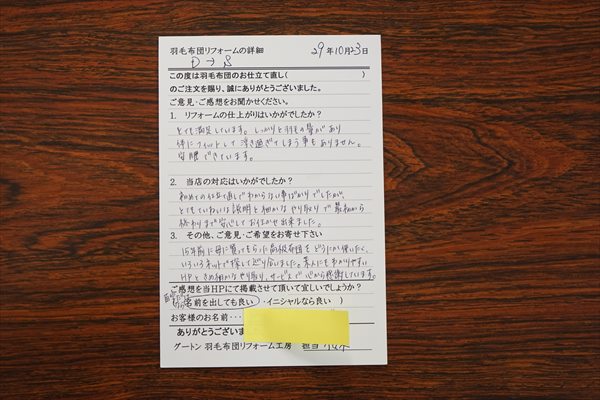 羽毛布団リフォームの詳細
29年10月23日
D→S
この度は羽毛布団のお仕立て直し( )
のご注文を賜り、誠にありがとうございました。
ご意見・ご感想をお聞かせください。
1. リフォームの仕上がりはいかがでしたか?
とても満足しています。しっかりと羽毛の量があり
体にフィットして浮き過ぎてしまう事もありません。
安眠できています。
2. 当店の対応はいかがでしたか?
初めての仕立て直しでわからない事ばかりでしたが、
とてもていねいな説明と細かなやり取りで最初から
終わりまで安心してお任せ出来ました。
3. その他、ご意見・ご希望をお寄せ下さい
15年前に母に買ってもらった高級布団をどうにか使いたく、
いろいろネットで探して辿り合いました。素人にもわかりやすい
HPときめ細かなやり取り、サービスで心から感謝しています。
ご感想を当HPにて掲載させて頂いて宜しいでしょうか?
名前を出しても良い ・イニシャルなら良い )
お客様のお名前・・・
ありがとうございま
グートン 羽毛布団リフォーム工房 担当